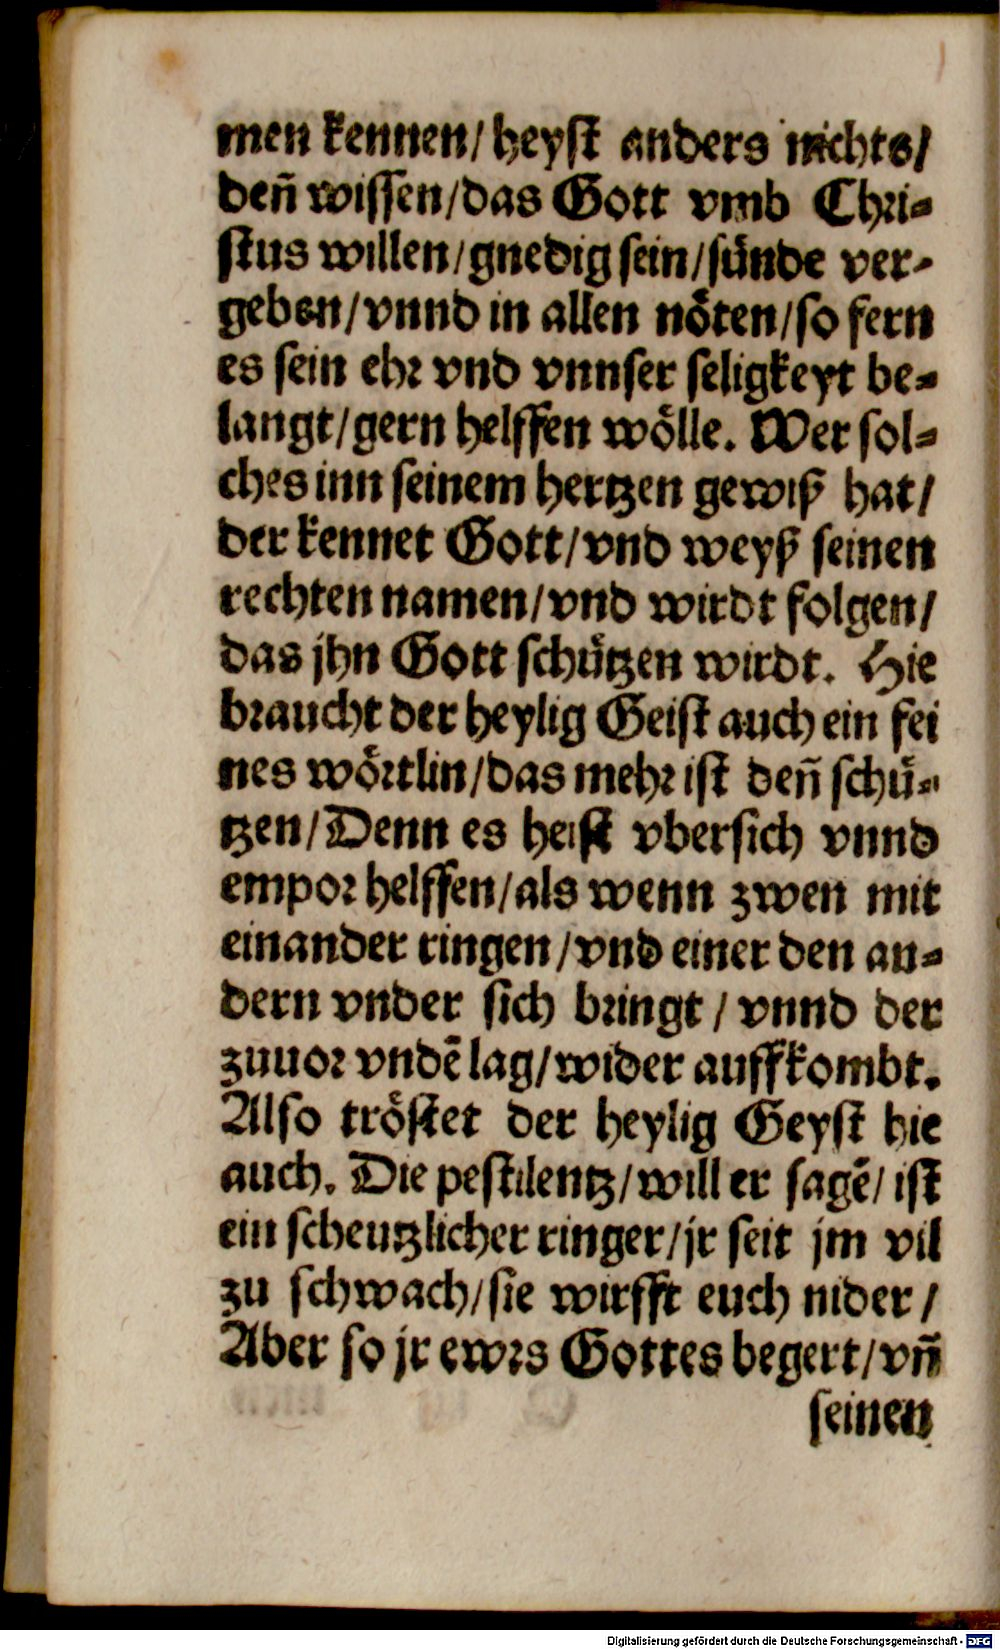 men kennen/ heyst anders nichts/
deñ wissen/das Gott vmb Chri-
stus willen/gnedig sein/sünde ver-
geben/vnnd in allen nöten/so fern
es sein ehr vnd vnnser seligkeyt be-
langt/gern helffen wölle. Wer sol-
ches inn seinem hertzen gewiß hat/
der kennet Gott/vnd weyß seinen
rechten namen/vnd wirdt folgen/
das jhn Gott schützen wirdt. Hie
braucht der heylig Geist auch ein fei
nes wörtlin/das mehr ist deñ schü-
tzen/Denn es heist vbersich vnnd
empor helffen/als wenn zwen mit
einander ringen/vnd einer den an-
dern vnder sich bringt/ vnnd der
zuuor vndē lag/wider auffkombt.
Also tröstet der heylig Geyst hie
auch. Die pestilentz/will er sagē/ ist
ein scheutzlicher ringer/jr seit jm vil
zu schwach/sie wirfft euch nider/
Aber so jr ewrs Gottes begert/vñ
seinen
Digitalisierung gefördert durch die Deutsche Forschungsgemeinschaft - DFG